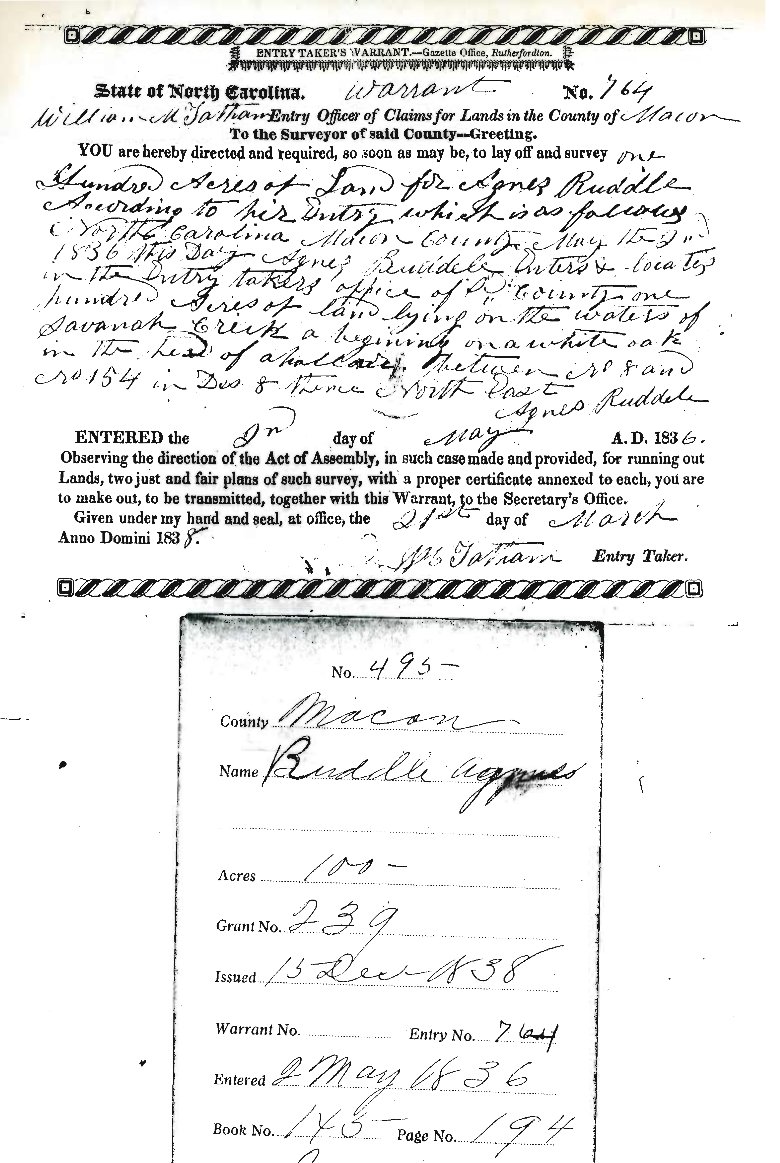 ENTRY TAKER'S WARRANT.—Gazette Office, Rutherfordton.
State of North Carolina. Warrant No. 764
William M Tatham Entry Officer of Claims for Lands in the County of Macon
To the Surveyor of said County—Greeting.
YOU are hereby directed and required, so soon as may be, to lay off and survey one
Hundred Acres of Land for Agnes Ruddle
According to his Entry which is as follows
North Carolina Macon County May the 2nd
1836 this Day Agnes Ruddele Enters & locates
in the Entry takers office of Sd County one
hundred Acres of land lying on the waters of
Savanah Creek a begining on a white oak
in the head of a hollow between No 8 and
No 154 in Des 8 thence North East
Agnes Ruddele
ENTERED the 2nd day of May A. D. 1836.
Observing the direction of the Act of Assembly, in such case made and provided, for running out
Lands, two just and fair plans of such survey, with a proper certificate annexed to each, you are
to make out, to be transmitted, together with this Warrant, to the Secretary's Office.
Given under my hand and seal, at office, the 21st day of March
Anno Domini 1838.
Wm Tatham Entry Taker.
No. 495
County Macon
Name Ruddle Agnes
Acres 100-
Grant No. 239
Issued 15 Dec 1838
Warrant No. Entry No. 764
Entered 2 May 1836
Book No. 145 Page No. 194